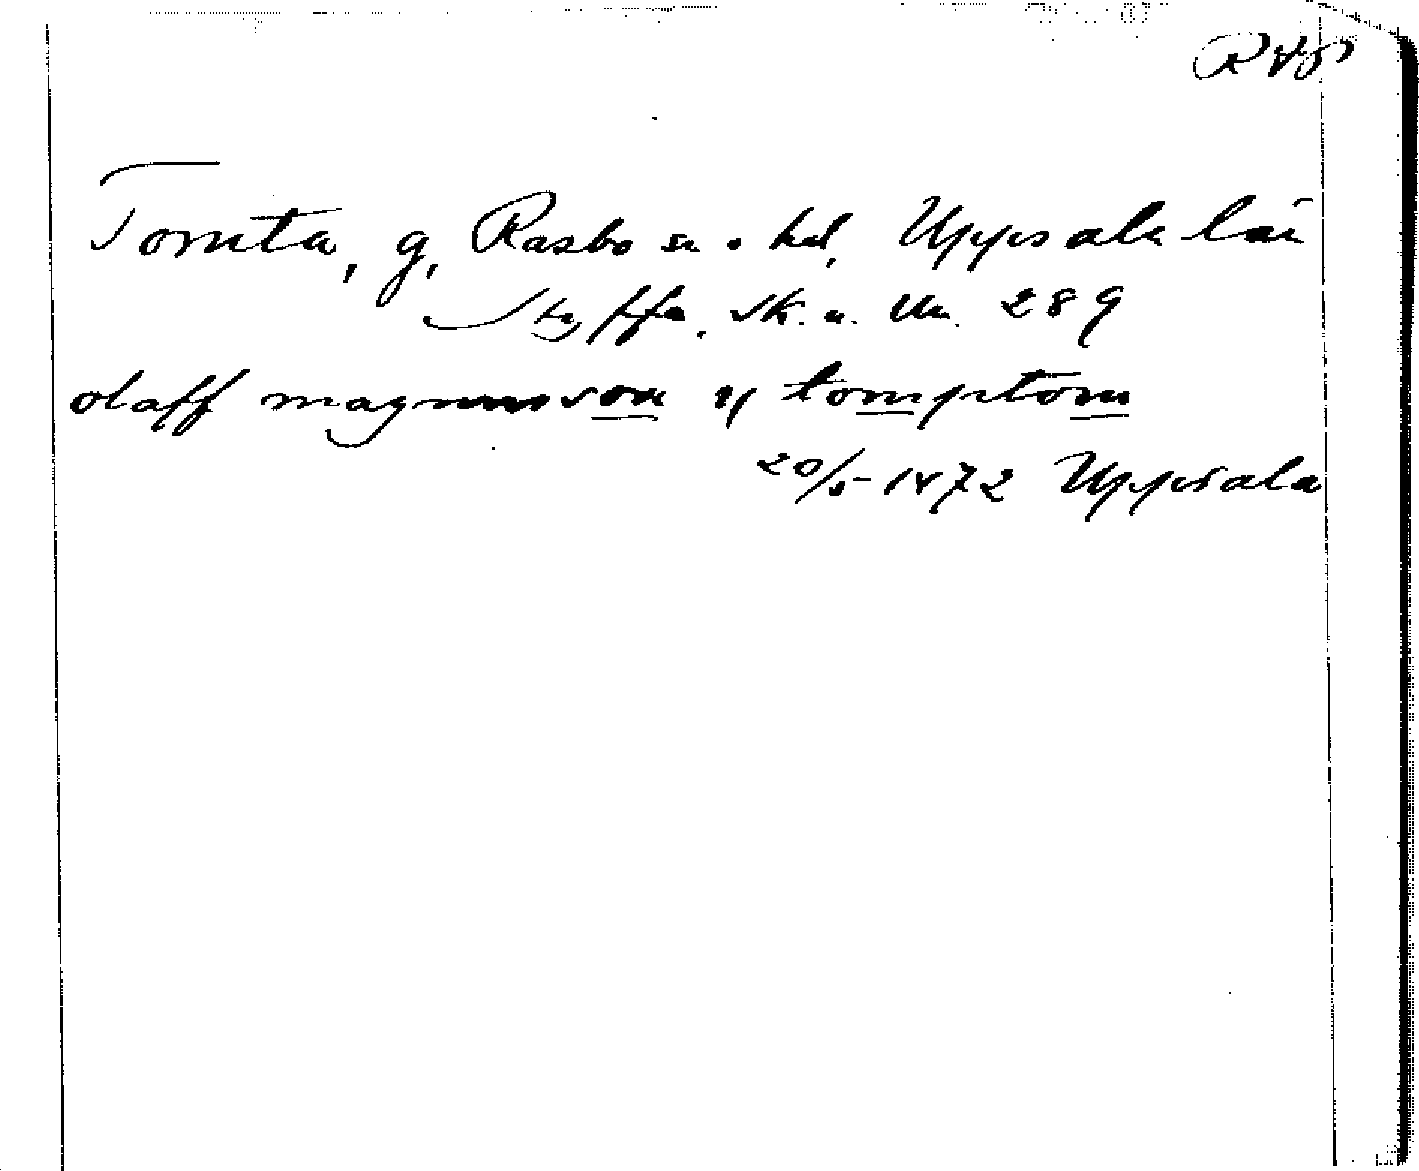 RAp
Tomta, g, Rasbo sn o. hd, Uppsala län
Styffe, Sk. u. Un. 289
olaff magnusson y tomptom
20/5 1472 Uppsala